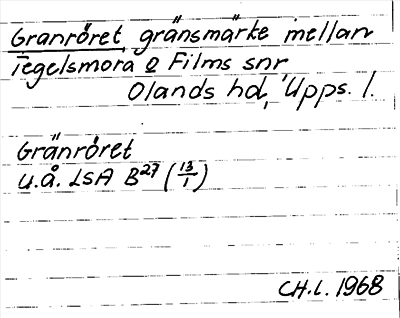 Granröret, gränsmärke mellan
Tegelsmora o Films snr
Olands hd, Upps. l.
Gränröret
u.å. LSA B27 (13/1)
CH.L. 1968